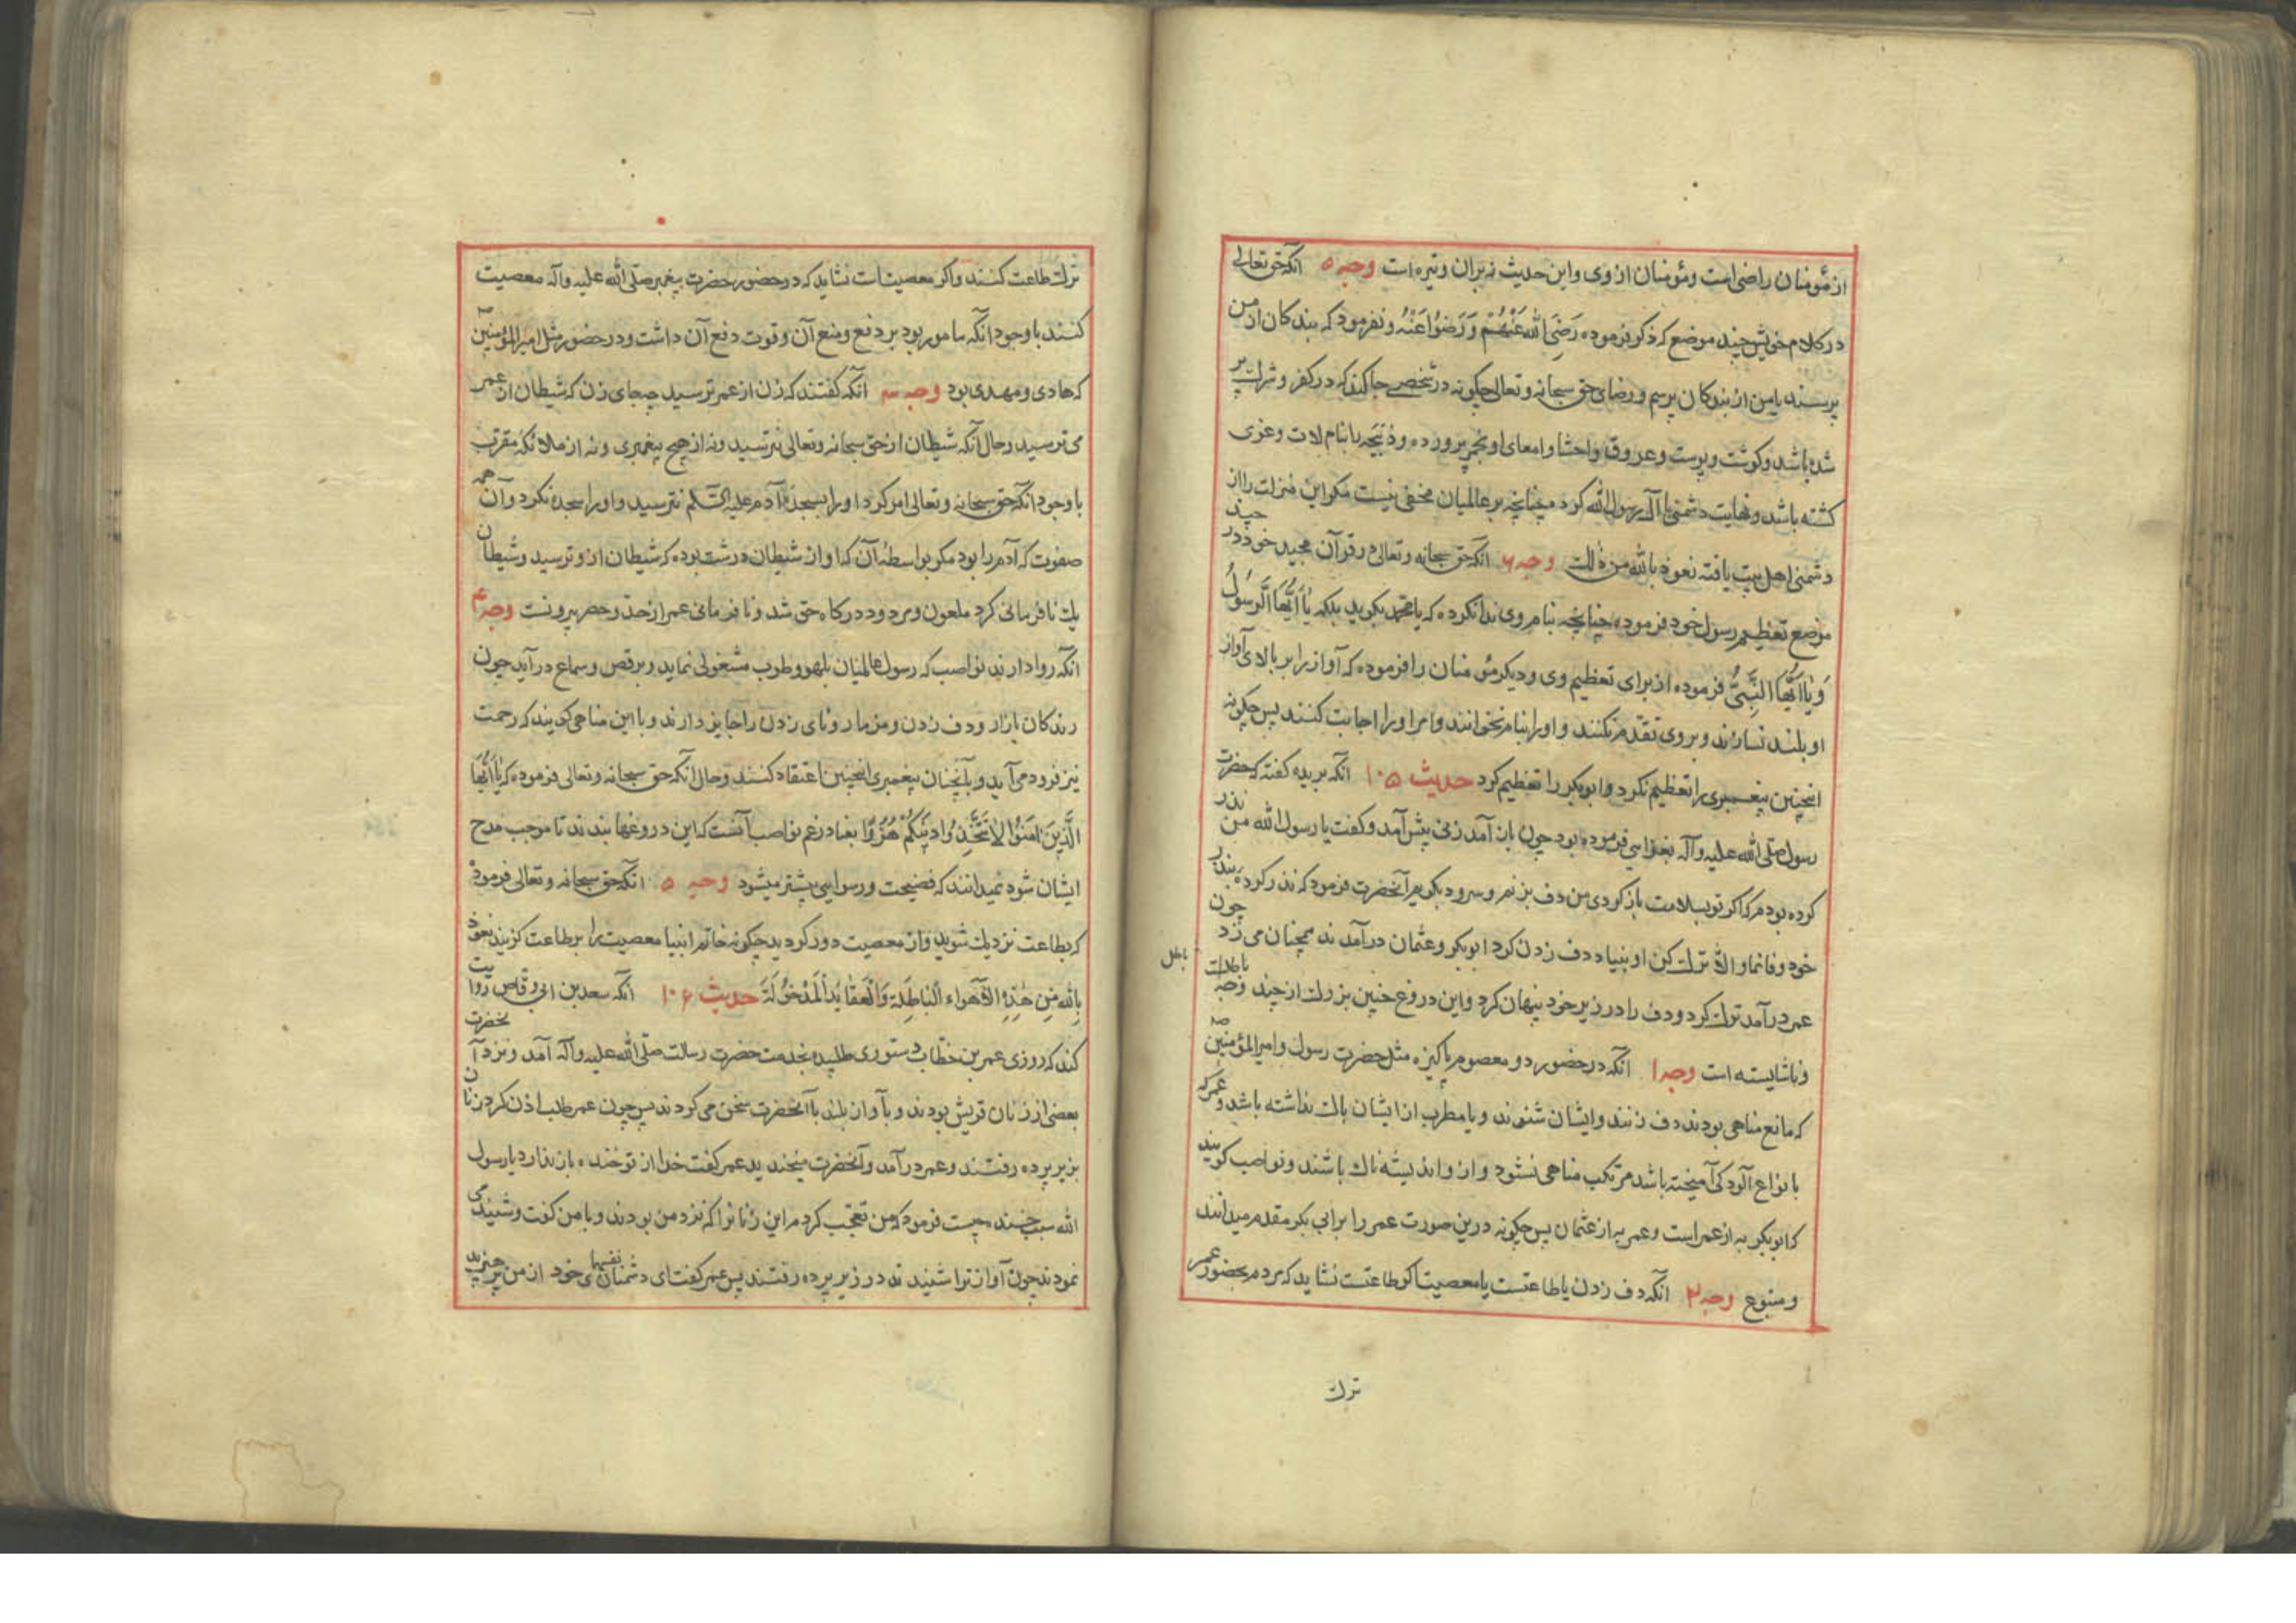 از مؤمنان راضی است و مؤمنان از وی و این حدیث نه بران وتیره است وجه ۵ آنکه حق تعالی
در کلام خویش چند موضع که ذکر فرموده رَضِیَ اللهُ عَنْهُمْ وَرَضُوا عَنْهُ و نفرمود که بندکان از من
پرسند یا من از بندکان پرسم و رضای حق سبحانه و تعالی چکونه در شخصی جا کند که در کفر و شرک پیر
شده باشد و کوشت و پوست و عروق و احشا و امعای او بخمر پرورده و ذبیحه با بنام لات و عزی
کشته باشد و نهایت دشمنی با آل رسول الله کرد چنانچه بر عالمیان مخفی نیست مکر این منزلت را از
دشمنی اهل بیت یافته نعوذ بالله من ذلک وجه ۶ آنکه حق سبحانه و تعالی در قرآن مجید خود در چند
موضع تعظیم رسول خود فرموده چنانچه بنام وی ندا نکرده که یا محمد بکوید بلکه یٰا اَیُّهَا الرَّسُولُ
وَ یٰا اَیُّهَا النَّبِیُّ فرموده از برای تعظیم وی و دیکر مؤمنان را فرموده که آواز را بر بالای آواز
او بلند نسازند و بر وی تقدم نکنند و او را بنام نخوانند و امر او را اجابت کنند پس چکونه
اینچنین پیغمبری را تعظیم نکرد و ابوبکر را تعظیم کرد حدیث ۱۰۵ آنکه بریده کفته که حضرت
رسول صلی الله علیه وآله بغزایی فرموده بود چون باز آمد زنی پیش آمد و کفت یا رسول الله من نذر
کرده بودم که اکر تو بسلامت باز کردی من دف بزنم و سرود بکویم آنحضرت فرمود که نذر کرده بنذر
خود وفا نما و الا ترک کن او بنیاد دف زدن کرد ابوبکر و عثمان درآمدند همچنان می زد چون
عمر درآمد ترک کرد و دف را در زیر خود پنهان کرد و این دروغ چنین بزرک از چند وجه باطلست
باطل
و ناشایسته است وجه ۱ آنکه در حضور دو معصوم پاکیزه مثل حضرت رسول و امیرالمؤمنین
که مانع مناهی بودند دف زنند و ایشان شنوند و یا مطرب از ایشان باک نداشته باشد و عمر که
بانواع آلودکی آمیخته باشد مرتکب مناهی نشود و از و اندیشه ناک باشند و نواصب کویند
که ابوبکر به از عمر است و عمر به از عثمان پس چکونه درین صورت عمر را بر ابی بکر مقدم میدانند
و متبوع وجه ۲ آنکه دف زدن یا طاعتست یا معصیت اکر طاعتست نشاید که مردم بحضور عمر
ترک
ترک طاعت کنند و اکر معصیت است نشاید که در حضور حضرت پیغمبر صلی الله علیه وآله معصیت
کنند با وجود آنکه مامور بود بر دفع و منع آن و قوت دفع آن داشت و در حضور مثل امیرالمؤمنین
که هادی و مهدی بود وجه سه آنکه کفتند که زن از عمر ترسید چه جای زن که شیطان از عمر
می ترسید و حال آنکه شیطان از حق سبحانه و تعالی نترسید و نه از هیچ پیغمبری و نه از ملائکهٔ مقرب
با وجود آنکه حق سبحانه و تعالی امر کرد او را بسجدهٔ آدم علیه السلام نترسید و او را سجده نکرد و آن همه
صفوت که آدم را بود مکر بواسطهٔ آن که او از شیطان درشت بوده که شیطان از و ترسید و شیطان
یک نافرمانی کرد ملعون و مردود درکاه حق شد و نافرمانی عمر از حد و حصر بیرونست وجه ۴
آنکه روا دارند نواصب که رسول عالمیان بلهو و طرب مشغولی نماید و برقص و سماع درآید چون
رندکان بازار و دف زدن و مزمار و نای زدن را جایز دارند و با این مناهی کویند که رحمت
نیز فرود می آید و بآنچنان پیغمبری اینچنین اعتقاد کنند و حال آنکه حق سبحانه و تعالی فرموده که یٰا اَیُّهَا
الَّذینَ اٰمَنُوا لاٰ تَتَّخِذُوا دینَکُمْ هُزُوًا بغیاد زعم نواصب آنست که این دروغها بندند تا موجب مدح
ایشان شود نمیدانند که فضیحت و رسوایی بیشتر میشود وجه ۵ آنکه حق سبحانه و تعالی فرموده
که بطاعت نزدیک شوید و از معصیت دور کردید چکونه خاتم انبیا معصیت را بر طاعت کزیند نعوذ
بِاللهِ مِنْ هٰذِهِ الْاَهْواءِ الْبٰاطِلَةِ وَ الْعَقٰایِدِ الْمَدْخُولَةِ حدیث ۱۰۶ آنکه سعد بن ابی وقاص روایت
کند که روزی عمر بن خطاب دستوری طلبیده بخدمت حضرت رسالت صلی الله علیه وآله آمد و نزد آنحضرت
بعضی از زنان قریش بودند و بآواز بلند با آنحضرت سخن می کردند پس چون عمر طلب اذن کرد زنان
بزیر پرده رفتند و عمر درآمد و آنحضرت میخندید عمر کفت خدا از تو خنده باز ندارد یا رسول
الله سبب خنده چیست فرمود که من تعجب کردم این زنانرا که نزد من بودند و با من کفت و شنید می
نمودند چون آواز ترا شنیدند در زیر پرده رفتند پس عمر کفت ای دشمنان نفسهای خود از من می پرهیزید